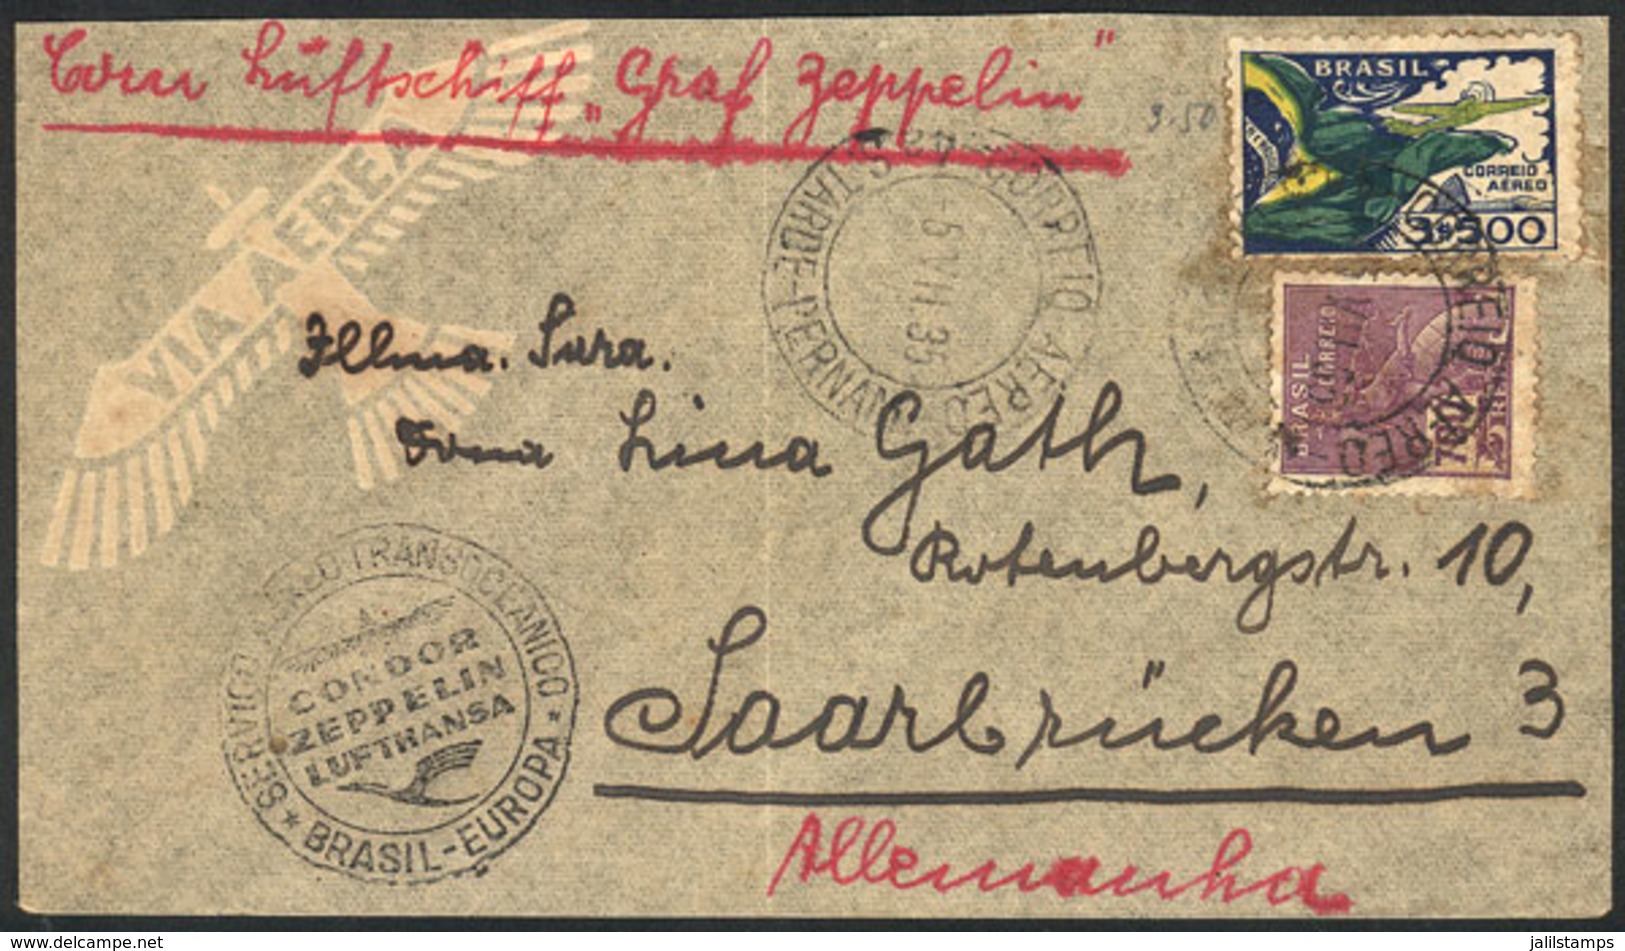 Com Luftschiff „Graf Zeppelin"
VIA AEREA
3.50
BRASIL
CORREIO
AÉREO
3$500
CORREIO AEREO
TARDE-PERNAM
-6 VII.35
BRASIL
CORREIO
700
CORREIO AEREO
Illma. Snra.
Dona Lina Gath,
Rotenbergstr. 10,
Saarbrücken 3
Allemanha
SERVIÇO AEREO TRANSOCEANICO
CONDOR
ZEPPELIN
LUFTHANSA
* BRASIL-EUROPA *
delcampe.net
jalilstamps